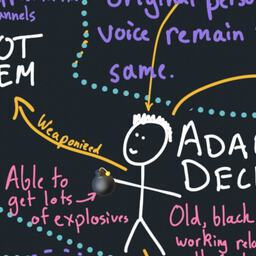 nnels
Original perso
voice remain
same.
OT
EM
Weaponized
ADA
DEC
Able to
get lots
of explosives
Old, black
working rela